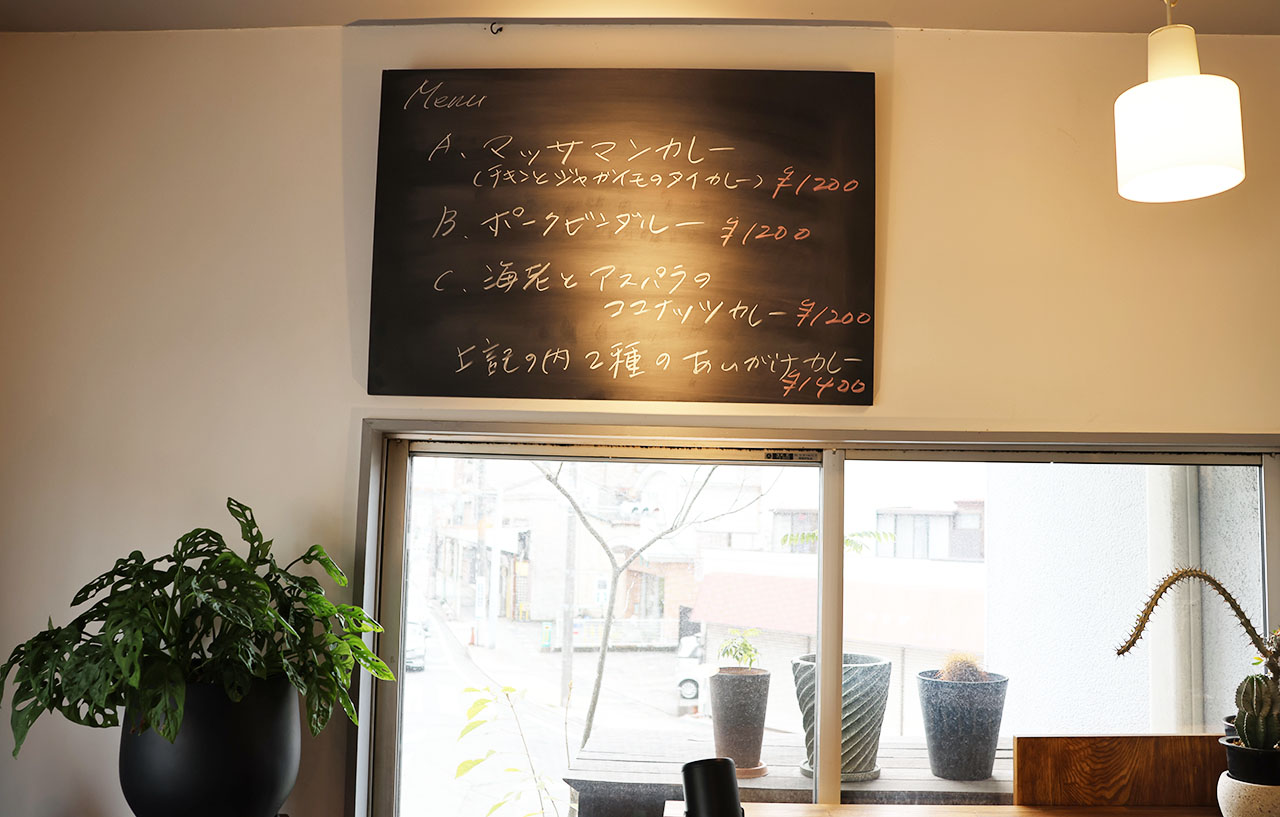 Menu
A、マッサマンカレー
(チキンとジャガイモのタイカレー) ¥1200
B、ポークビンダルー ¥1200
C、海老とアスパラの
ココナッツカレー ¥1200
上記の内2種のあいがけカレー
¥1400